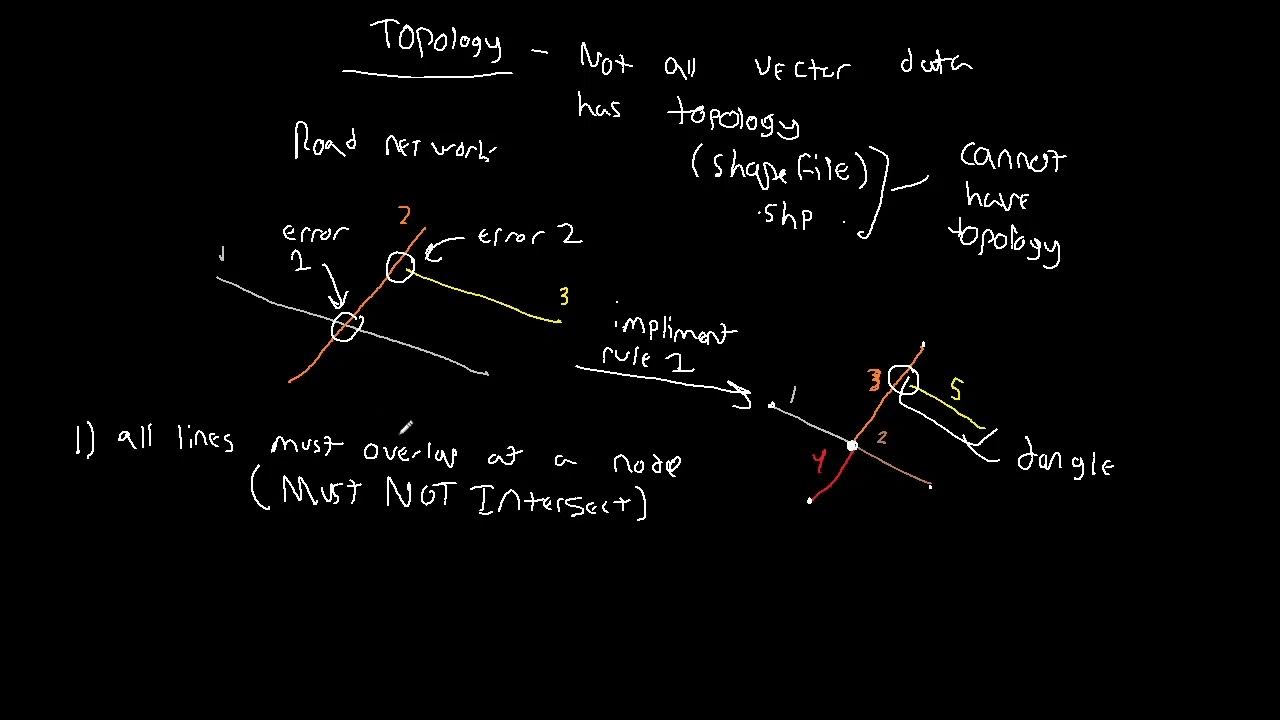 Topology - Not all vector data
has topology
(shapefile)
.shp
cannot
have
topology
Road network
error
1
error 2
1
2
3
impliment
rule 1
1
2
3
4
5
dangle
1) all lines must overlap at a node
(Must NOT Intersect)